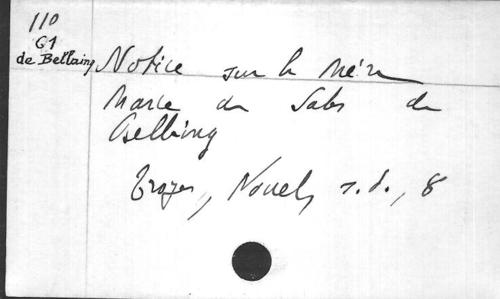 110
G1
de Bellaing
Notice sur la Mère
Marie de Sales de
Bellaing
Troyes, Nouel, s.d., 8